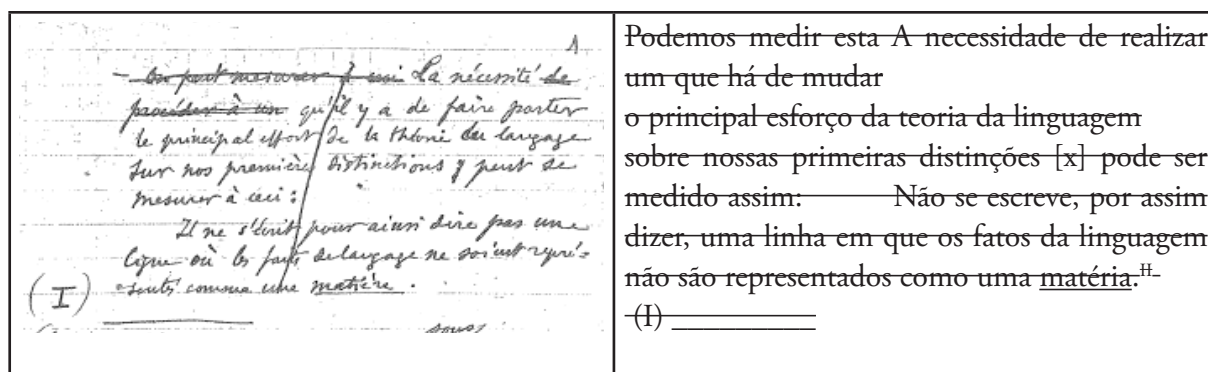 1
- On peut mesurer à ceci La nécessité de
procéder à un qu'il y a de faire porter
le principal effort de la théorie du langage
sur nos premières distinctions peut se
mesurer à ceci :
Il ne s'écrit pour ainsi dire pas une
ligne où les faits de langage ne soient repré-
sentés comme une matière.
(I)
Podemos medir esta A necessidade de realizar
um que há de mudar
o principal esforço da teoria da linguagem
sobre nossas primeiras distinções [x] pode ser
medido assim: Não se escreve, por assim
dizer, uma linha em que os fatos da linguagem
não são representados como uma matéria.II
(I) __________